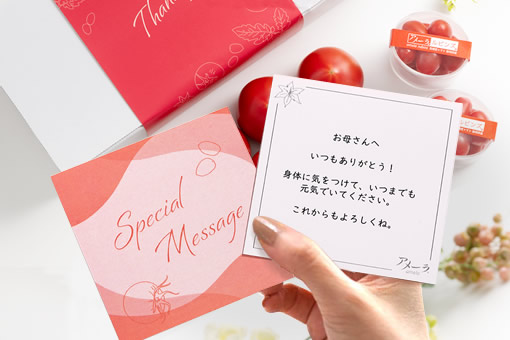 Than
Special
Message
お母さんへ
いつもありがとう！
身体に気をつけて、いつまでも
元気でいてください。
これからもよろしくね。
アメーラ
アメーラルビンズ